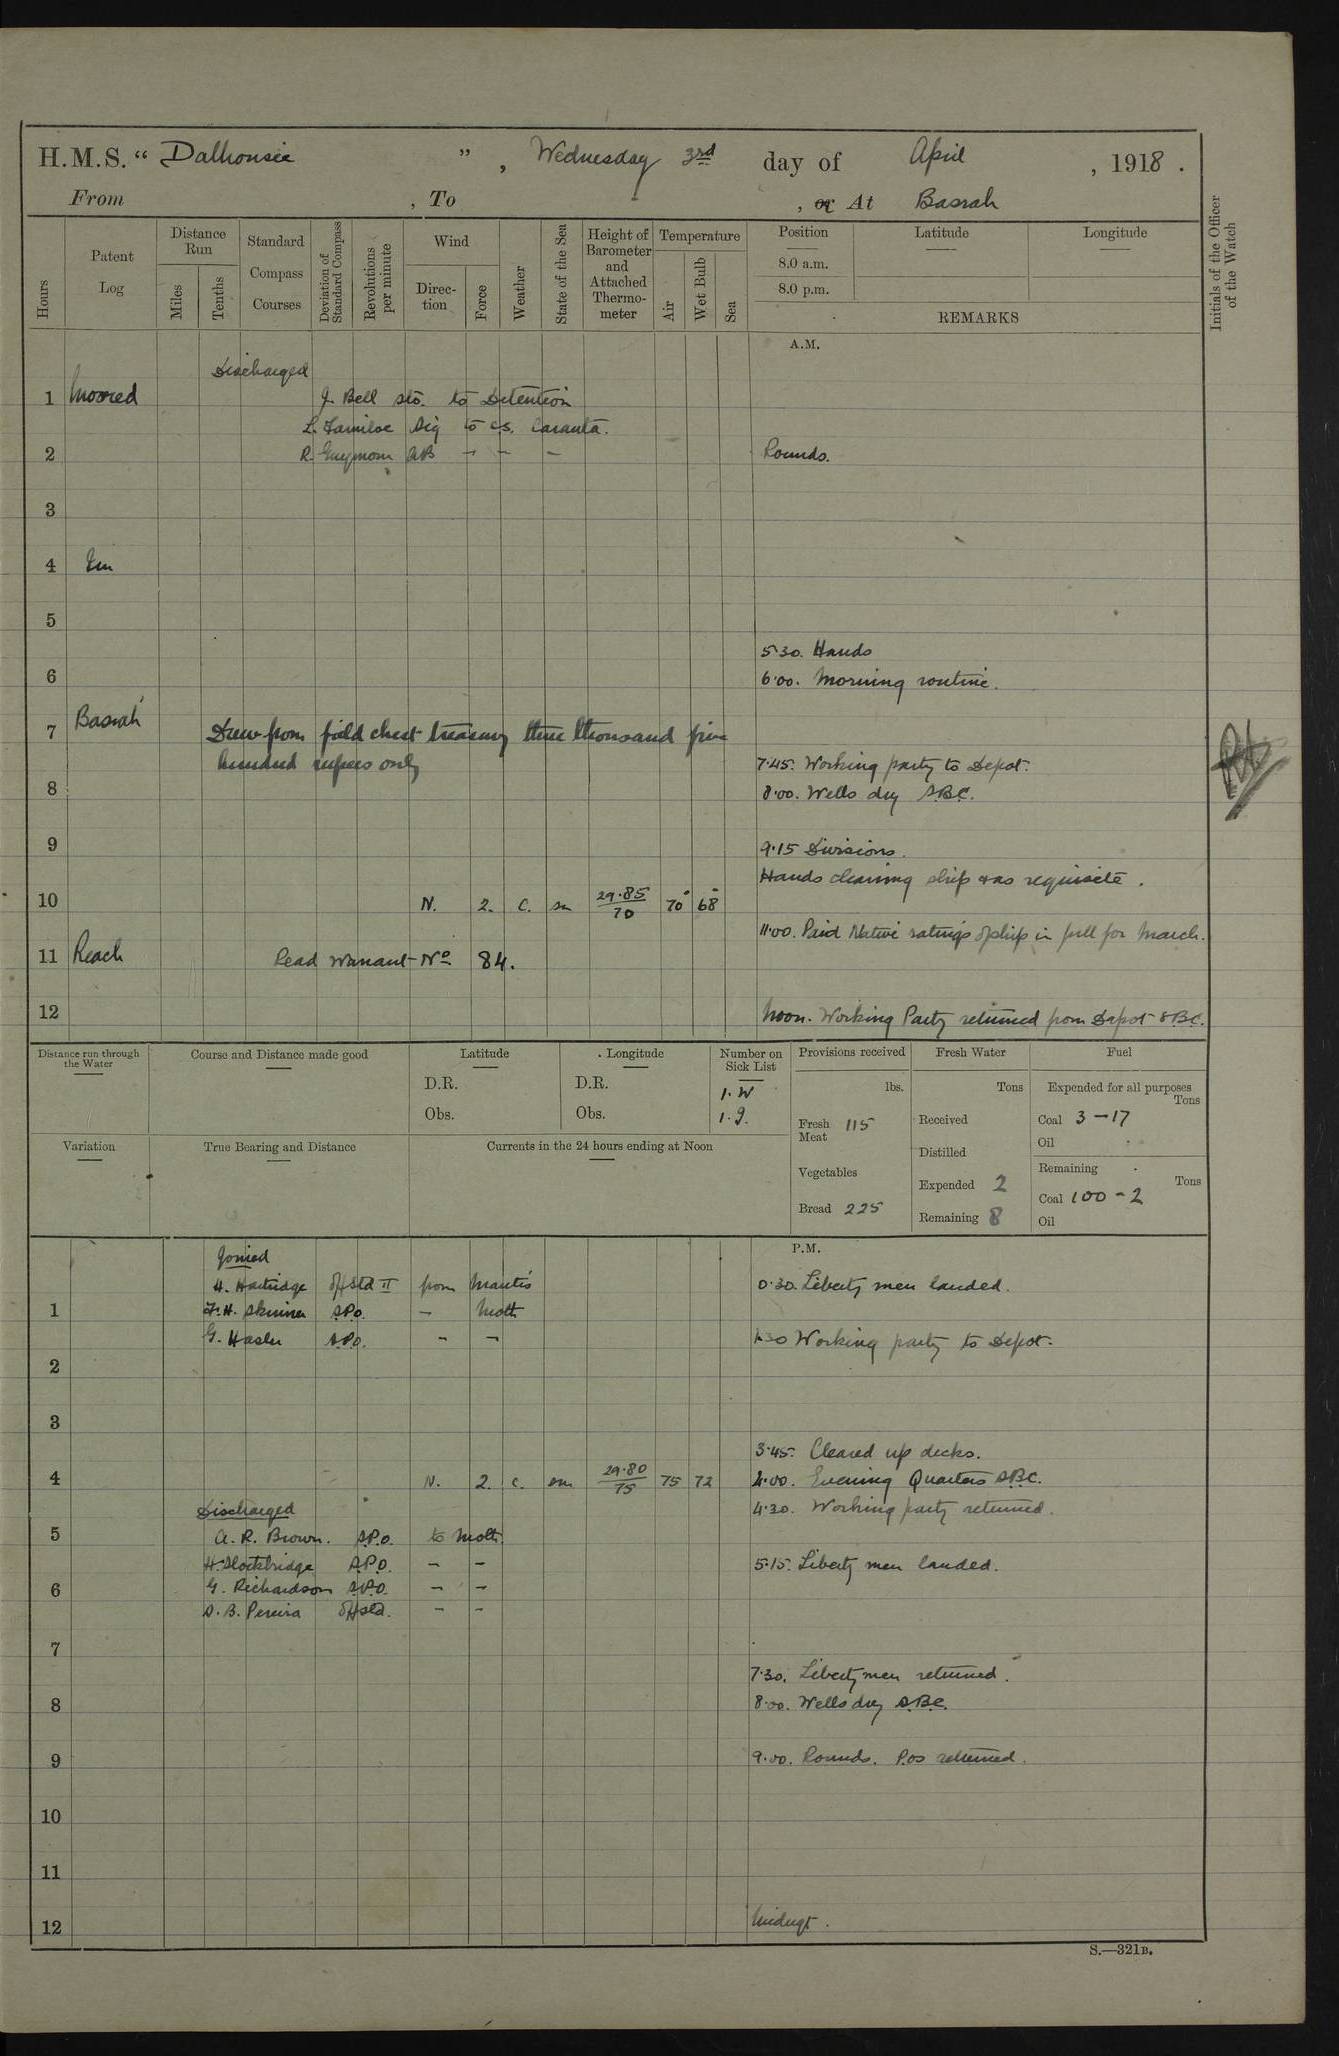 H.M.S. “ Dalhousie ” , Wednesday 3rd day of April , 1918 .
From , To , or At Basrah
Hours
Patent Log
Distance Run
Miles
Tenths
Standard Compass Courses
Deviation of Standard Compass
Revolutions per minute
Wind
Direc-tion
Force
Weather
State of the Sea
Height of Barometer and Attached Thermo-meter
Temperature
Air
Wet Bulb
Sea
Position
8.0 a.m.
8.0 p.m.
Latitude
Longitude
REMARKS
Initials of the Officer of the Watch
A.M.
Discharged
1 Moored J. Bell sto. to Detention
L. Sig to c.s. Caranta.
2 R. AB - - - Rounds.
3
4 In
5
5.30. Hands
6 6.00. Morning routine.
7 Basrah Drew from field chest treasury three thousand five
hundred rupees only 7.45. Working party to Depot.
8 8.00. Wells dry S.B.C.
9 9.15 Divisions.
Hands cleaning ship & as requisite.
10 N. 2. C. sm 29.85/70 70 68
11.00. Paid Native ratings of ship in full for March.
11 Reach Read Warrant No 84.
12 Noon. Working Party returned from Depot SBC.
Distance run through the Water
Course and Distance made good
Latitude
D.R.
Obs.
Longitude
D.R.
Obs.
Number on Sick List
1. W
1. 9.
Provisions received
lbs.
Fresh Meat 115
Vegetables
Bread 225
Fresh Water
Tons
Received
Distilled
Expended 2
Remaining 8
Fuel
Expended for all purposes
Tons
Coal 3-17
Oil
Remaining
Tons
Coal 100-2
Oil
Variation
True Bearing and Distance
Currents in the 24 hours ending at Noon
P.M.
Joined
H. Hartridge Off Std II from Mantis 0.30. Liberty men landed.
1 F.H. Skinner S.P.O. - Moth
G. Hasler S.P.O. - - 1.30 Working party to Depot.
2
3
3.45. Cleared up decks.
4 N. 2. C. sm 29.80/75 75 72 4.00. Evening Quarters S.B.C.
Discharged 4.30. Working party returned.
5 A. R. Brown. S.P.O. to Moth.
H. Stockbridge S.P.O. - - 5.15. Liberty men landed.
6 G. Richardson S.P.O. - -
S. B. Pereira Off Std. - -
7
7.30. Liberty men returned.
8 8.00. Wells dry S.B.C.
9 9.00. Rounds. P.Os returned.
10
11
12 Midngt.
S.—321B.